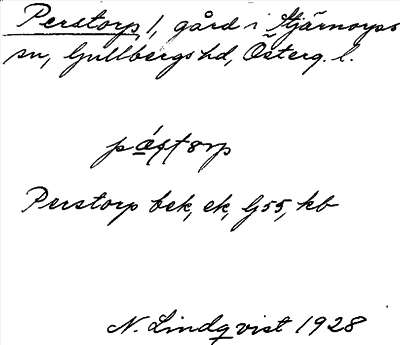 Perstorp, 1, gård i Stjärnorps
sn, Gullbergs hd, Österg. l.
Perstorp bek, ek, G55, kb
N. Lindqvist 1928